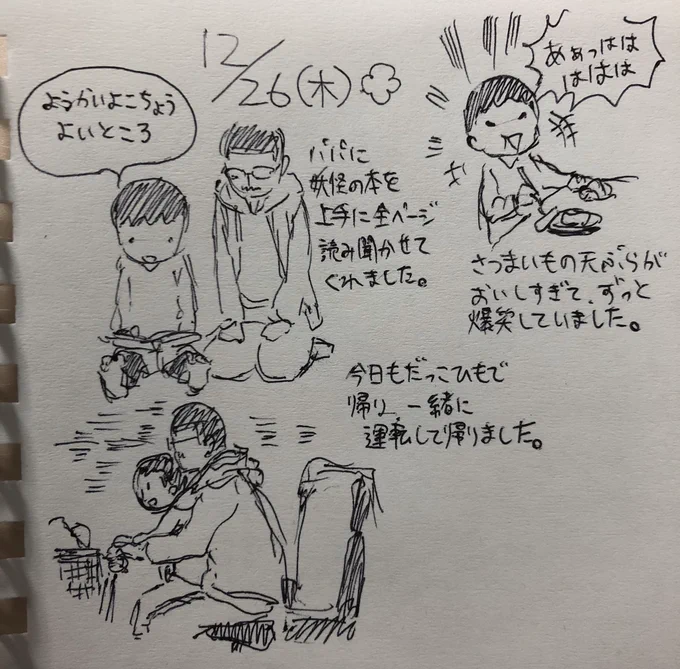 12/26(木)
ようかいよこちょう
よいところ
パパに
妖怪の本を
上手に全ページ
読み聞かせて
くれました。
あぁっはは
ははは
さつまいもの天ぷらが
おいしすぎて、ずっと
爆笑していました。
今日もだっこひもで
帰り、一緒に
運転して帰りました。